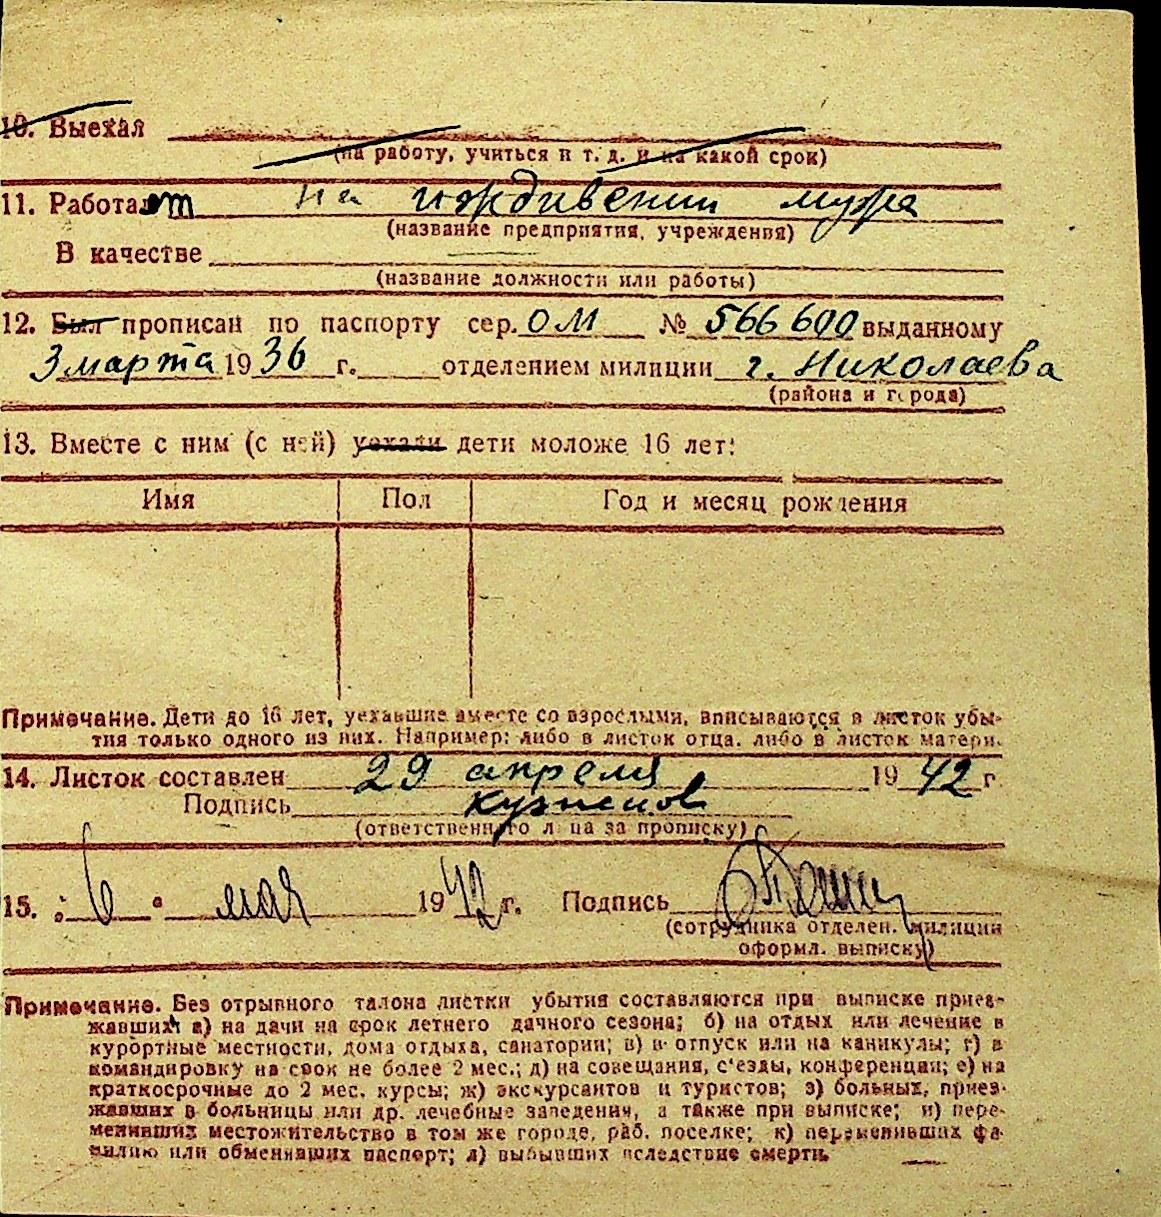 10. Выехал
(на работу, учиться и т. д. и на какой срок)
11. Работает на иждивении мужа
(название предприятия, учреждения)
В качестве
(название должности или работы)
12. Был прописан по паспорту сер. ОМ № 566600 выданному
3 марта 1936 г. отделением милиции г. Николаева
(района и города)
13. Вместе с ним (с ней) уехали дети моложе 16 лет:
Имя Пол Год и месяц рождения
Примечание. Дети до 16 лет, уехавшие вместе со взрослыми, вписываются в листок убы-
тия только одного из них. Например: либо в листок отца. либо в листок матери.
14. Листок составлен 29 апреля 1942 г.
Подпись Кузнецов
(ответственного лица за прописку)
15. "6" мая 1942 г. Подпись
(сотрудника отделен. милиции
оформл. выписку)
Примечание. Без отрывного талона листки убытия составляются при выписке приез-
жавших а) на дачи на срок летнего дачного сезона; б) на отдых или лечение в
курортные местности, дома отдыха, санатории; в) в отпуск или на каникулы; г) в
командировку на срок не более 2 мес.; д) на совещания, с'езды, конференции; е) на
краткосрочные до 2 мес. курсы; ж) экскурсантов и туристов; з) больных, приез-
жавших в больницы или др. лечебные заведения, а также при выписке; и) пере-
менивших местожительство в том же городе, раб. поселке; к) переменивших фа-
милию или обменявших паспорт; л) выбывших вследствие смерти.